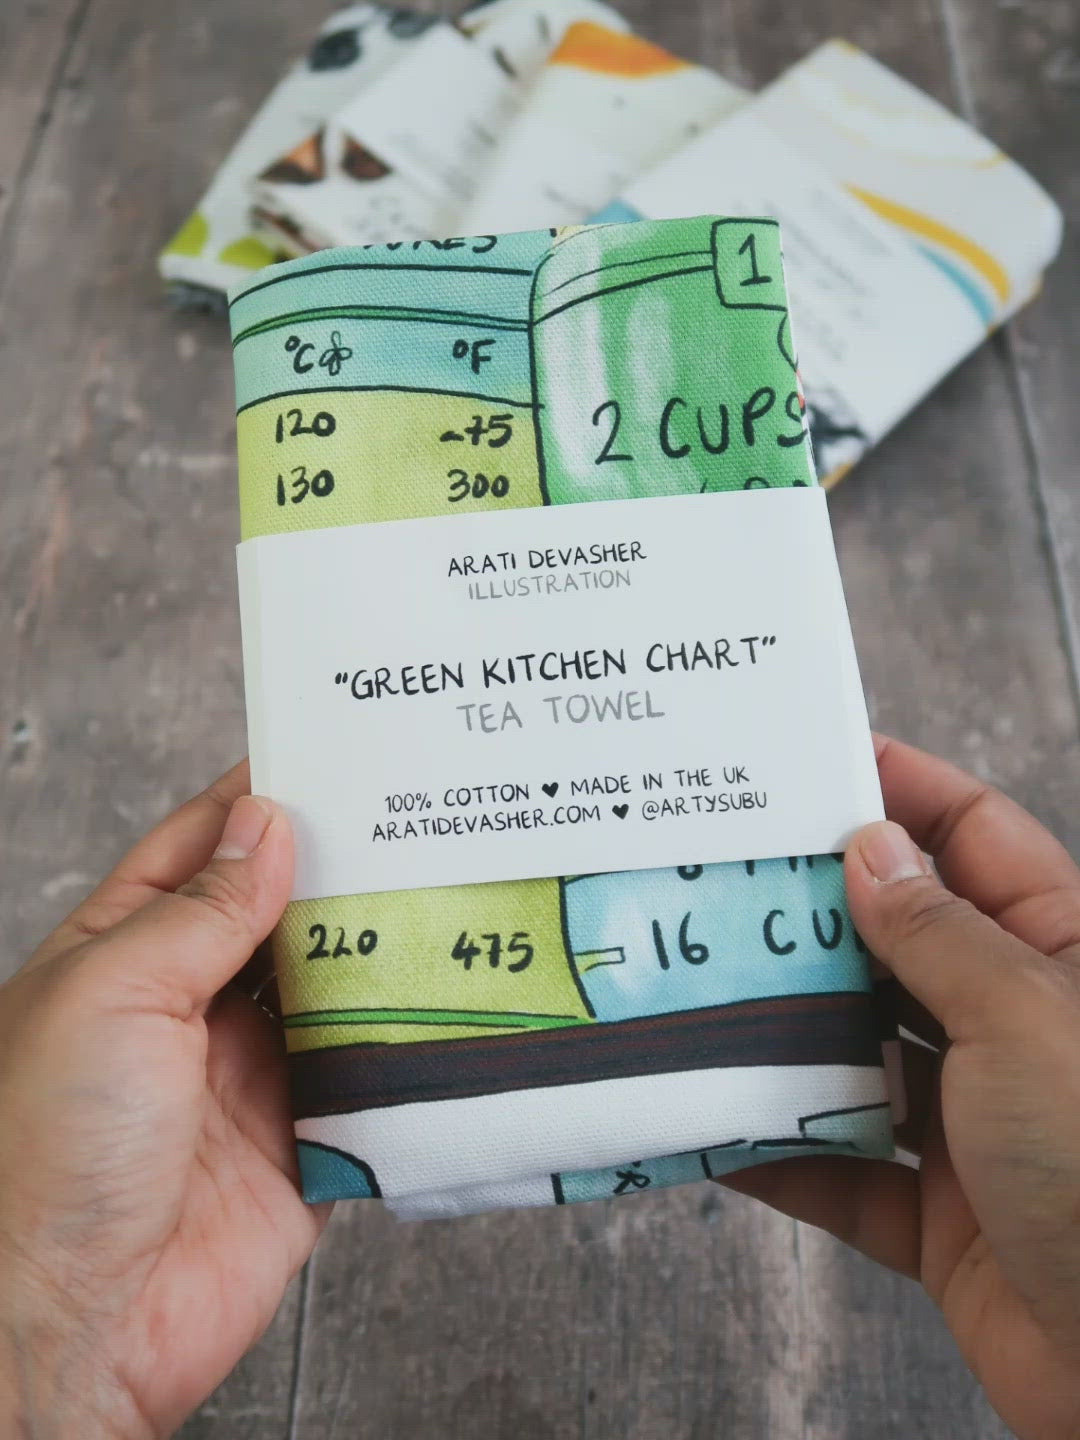 °C °F
120 -75
130 300
1
2 CUPS
ARATI DEVASHER
ILLUSTRATION
"GREEN KITCHEN CHART"
TEA TOWEL
100% COTTON ♥ MADE IN THE UK
ARATIDEVASHER.COM ♥ @ARTYSUBU
220 475
16 CU